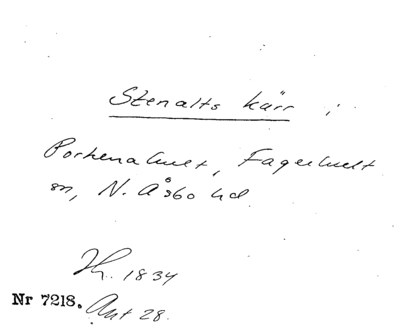 Stenalts kärr i
Porkenahult, Fagerhult
sn, N. Åsbo hd
Hr. 1834
Nr 7218. Akt 28.